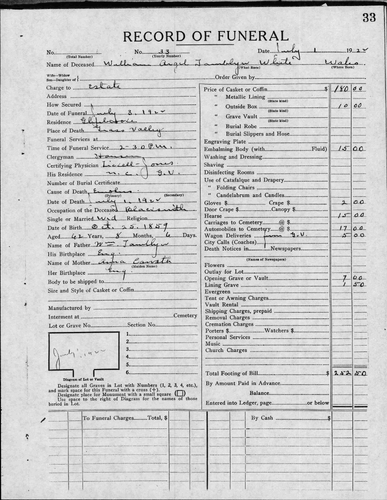 33
RECORD OF FUNERAL
No. (Total Number) No. 33 (Yearly Number) Date July 1 1922
Name of Deceased William Angel White Wales
Wife-Widow
Son-Daughter of Order Given by
Charge to Estate
Address
How Secured
Date of Funeral July 3, 1922
Residence
Place of Death Grass Valley
Funeral Services at
Time of Funeral Service 2-30 P.M.
Clergyman
Certifying Physician Jones
His Residence N.C. G.V.
Number of Burial Certificate
Cause of Death
Date of Death July 1, 1922
Occupation of the Deceased Blacksmith
Single or Married Religion
Date of Birth Oct. 20. 1859
Aged 62 Years, 8 Months, Days
Name of Father Wm
His Birthplace Eng.
Name of Mother
Her Birthplace Eng
Body to be shipped to
Size and Style of Casket or Coffin
Manufactured by
Interment at Cemetery
Lot or Grave No. Section No.
Diagram of Lot or Vault
Designate all Graves in Lot with Numbers (1, 2, 3, 4, etc.),
and mark space for this Funeral with a cross (+).
Designate place for Monument with a small square (□)
Use space to the right of Diagram for the names of those
buried in Lot.
Price of Casket or Coffin $ 180 00
" Metallic Lining
" Outside Box 10 00
" Grave Vault
" Burial Robe
" Burial Slippers and Hose
Engraving Plate
Embalming Body (with Fluid) 15 00
Washing and Dressing
Shaving
Disinfecting Rooms
Use of Catafalque and Drapery
" Folding Chairs
" Candelabrum and Candles
Gloves $ Crape $ 2 00
Door Crape $ Canopy $
Hearse 15 00
Carriages to Cemetery @ $
Automobiles to Cemetery @ $ 17 00
Wagon Deliveries from G.V. 5 00
City Calls (Coaches)
Death Notices in Newspapers
Flowers
Outlay for Lot
Opening Grave or Vault 7 00
Lining Grave 1 50
Evergreen
Tent or Awning Charges
Vault Rental
Shipping Charges, prepaid
Removal Charges
Cremation Charges
Porters $ Watchers $
Personal Services
Music
Church Charges
Total Footing of Bill $ 252 50
By Amount Paid in Advance
Balance
Entered into Ledger, page or below.
To Funeral Charges Total, $ By Cash $